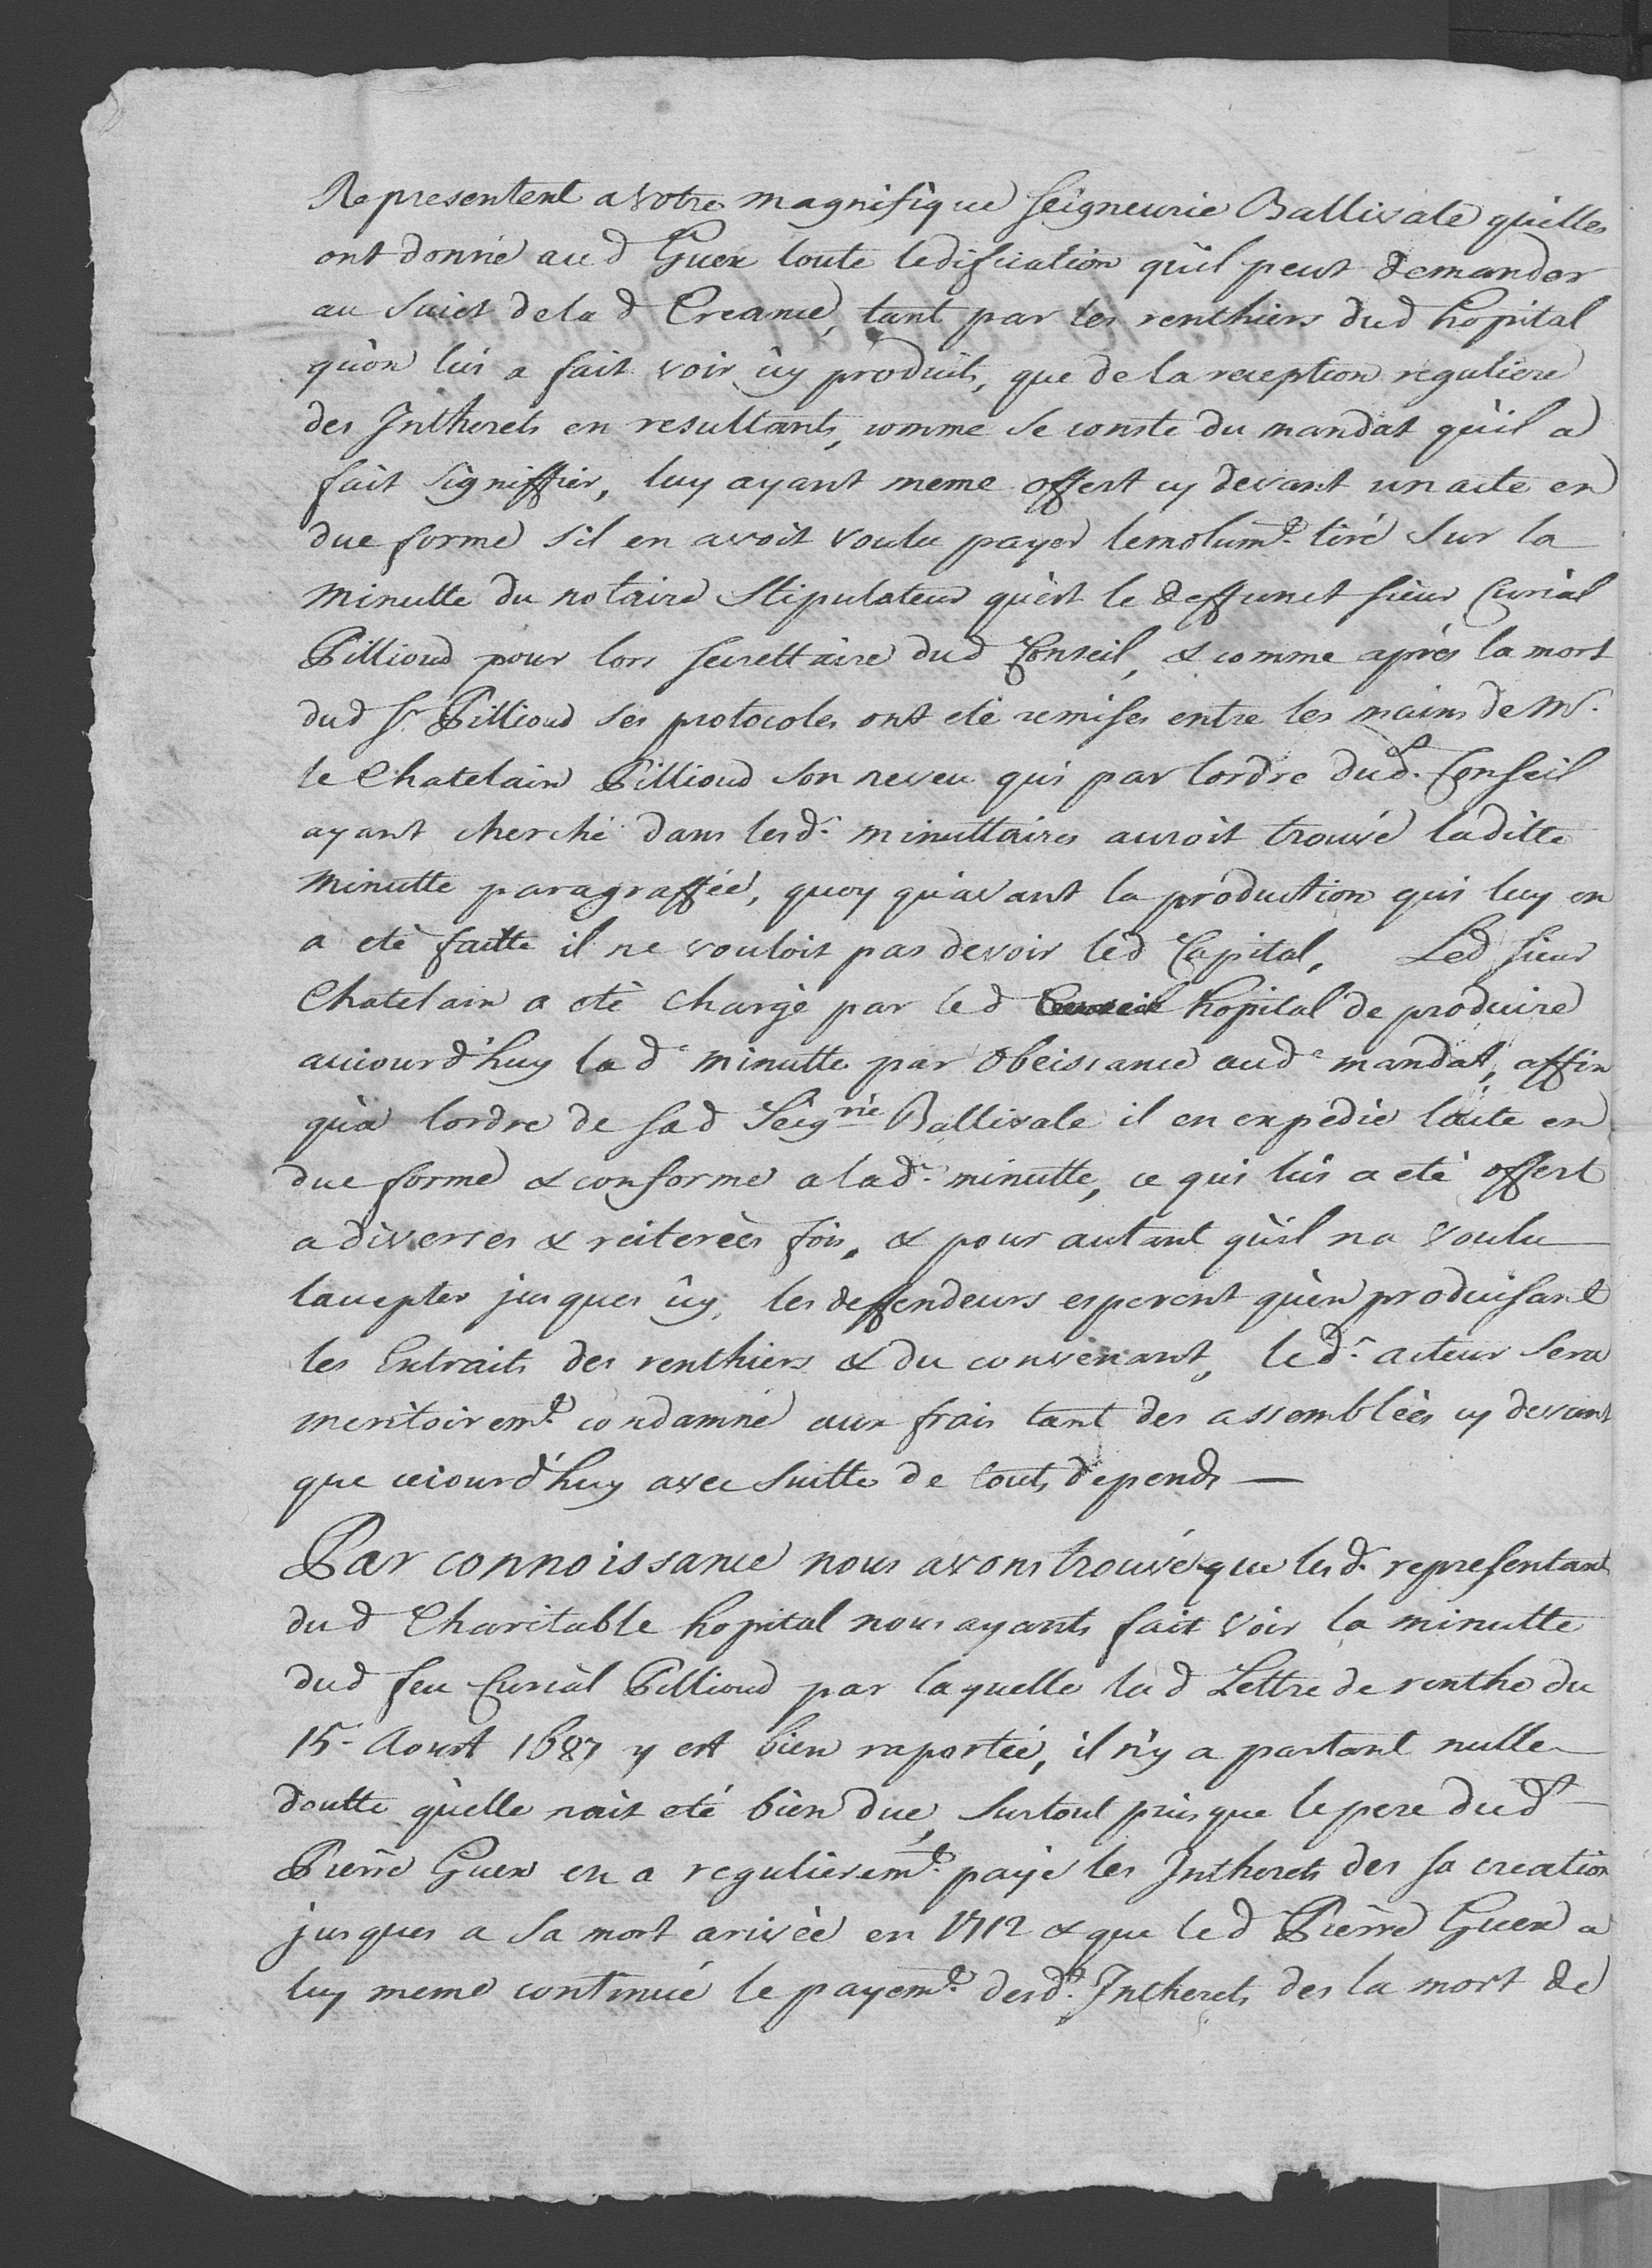 Representent a votre magnifique seigneurie Ballivale quelles
ont donné aud Guex toute ledification quil peut demander
au suiet de la d Creance, tant par les renthiers dud hopital
quon lui a fait voir icy produits, que de la reception reguliere
des Intherets en resultants, comme se conste du mandat quil a
fait signiffier, luy ayant meme offert cy devant un acte en
due forme sil en avoit voulu payer lemolumt. tiré sur la
minutte du notaire Stipulateur quest le deffunct sieur Curial
Pillioud pour lors secrettaire dud Conseil, & comme aprés la mort
dud sr Pillioud ses protocoles ont eté remises entre les mains de Mr.
le Chatelain Pillioud son neveu qui par lordre dud. Conseil
ayant cherché dans lesd. minuttaires auroit trouvé laditte
minutte paragraffée, quoy quavant la production qui luy en
a eté faitte il ne vouloit pas devoir led Capital, Led sieur
Chatelain a eté chargé par led Conseil hopital de produire
auiourd'huy lad.e minutte par obeissance aud.e mandat, affin
qua lordre de sad Seig.rie Ballivale il en expedie lacte en
due forme & conforme a lad.e minutte, ce qui lui a eté offert
a diverses & reiterées fois, & pour autant quil na voulu
laccepter jusques icy, les deffendeurs esperent quen produisant
les Extraits des renthiers & du convenant, led.t acteur sera
meritoiremt. condamné aux frais tant des assemblées cy devant
que ceiourd'huy avec suitte de touts depends —
Par connoissance nous avons trouvé que lesd. representants
dud Charitable hopital nous ayants fait voir la minutte
dud feu Curial Pillioud par laquelle lad Lettre de renthe du
15. Aoust 1687 y est bien raportée, il n'y a partant nulle
doutte quelle nait eté bien due, surtout puisque le pere dud.t
Pierre Guex en a regulieremt. payé les Intherets des sa creation
jusques a sa mort arivée en 1712 & que led Pierre Guex a
luy meme continué le payemt. desd.ts Intherets des la mort de